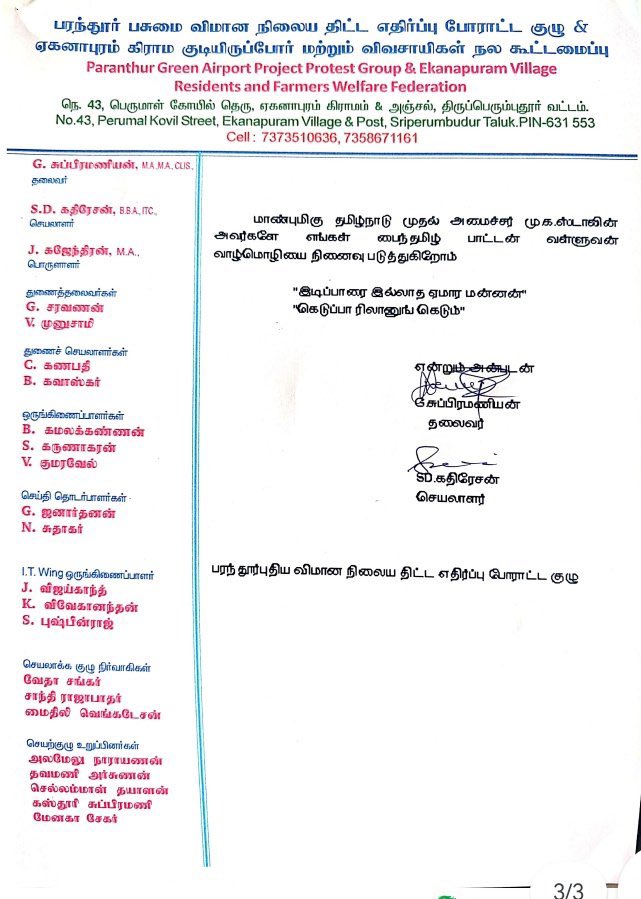 பரந்தூர் பசுமை விமான நிலைய திட்ட எதிர்ப்பு போராட்ட குழு &
ஏகனாபுரம் கிராம குடியிருப்போர் மற்றும் விவசாயிகள் நல கூட்டமைப்பு
Paranthur Green Airport Project Protest Group & Ekanapuram Village
Residents and Farmers Welfare Federation
நெ. 43, பெருமாள் கோயில் தெரு, ஏகனாபுரம் கிராமம் & அஞ்சல், திருப்பெரும்புதூர் வட்டம்.
No.43, Perumal Kovil Street, Ekanapuram Village & Post, Sriperumbudur Taluk.PIN-631 553
Cell : 7373510636, 7358671161
G. சுப்பிரமணியன், M.A.,M.A., CLIS.,
தலைவர்
S.D. கதிரேசன், B.B.A., ITC.,
செயலாளர்
J. கஜேந்திரன், M.A.,
பொருளாளர்
துணைத்தலைவர்கள்
G. சரவணன்
V. முனுசாமி
துணைச் செயலாளர்கள்
C. கணபதி
B. கவாஸ்கர்
ஒருங்கிணைப்பாளர்கள்
B. கமலக்கண்ணன்
S. கருணாகரன்
V. குமரவேல்
செய்தி தொடர்பாளர்கள்
G. ஜனார்தனன்
N. சுதாகர்
I.T. Wing ஒருங்கிணைப்பாளர்
J. விஜய்காந்த்
K. விவேகானந்தன்
S. புஷ்பின்ராஜ்
செயலாக்க குழு நிர்வாகிகள்
வேதா சங்கர்
சாந்தி ராஜாபாதர்
மைதிலி வெங்கடேசன்
செயற்குழு உறுப்பினர்கள்
அலமேலு நாராயணன்
தவமணி அர்சுணன்
செல்லம்மாள் தயாளன்
கஸ்தூரி சுப்பிரமணி
மேனகா சேகர்
மாண்புமிகு தமிழ்நாடு முதல் அமைச்சர் மு.க.ஸ்டாலின்
அவர்களே எங்கள் பைந்தமிழ் பாட்டன் வள்ளுவன்
வாழ்மொழியை நினைவு படுத்துகிறோம்
"இடிப்பாரை இல்லாத ஏமார மன்னன்"
"கெடுப்பா ரிலானுங் கெடும்"
என்றும் அன்புடன்
சுேப்பிரமணியன்
தலைவர்
SD.கதிரேசன்
செயலாளர்
பரந்தூர்புதிய விமான நிலைய திட்ட எதிர்ப்பு போராட்ட குழு
3/3